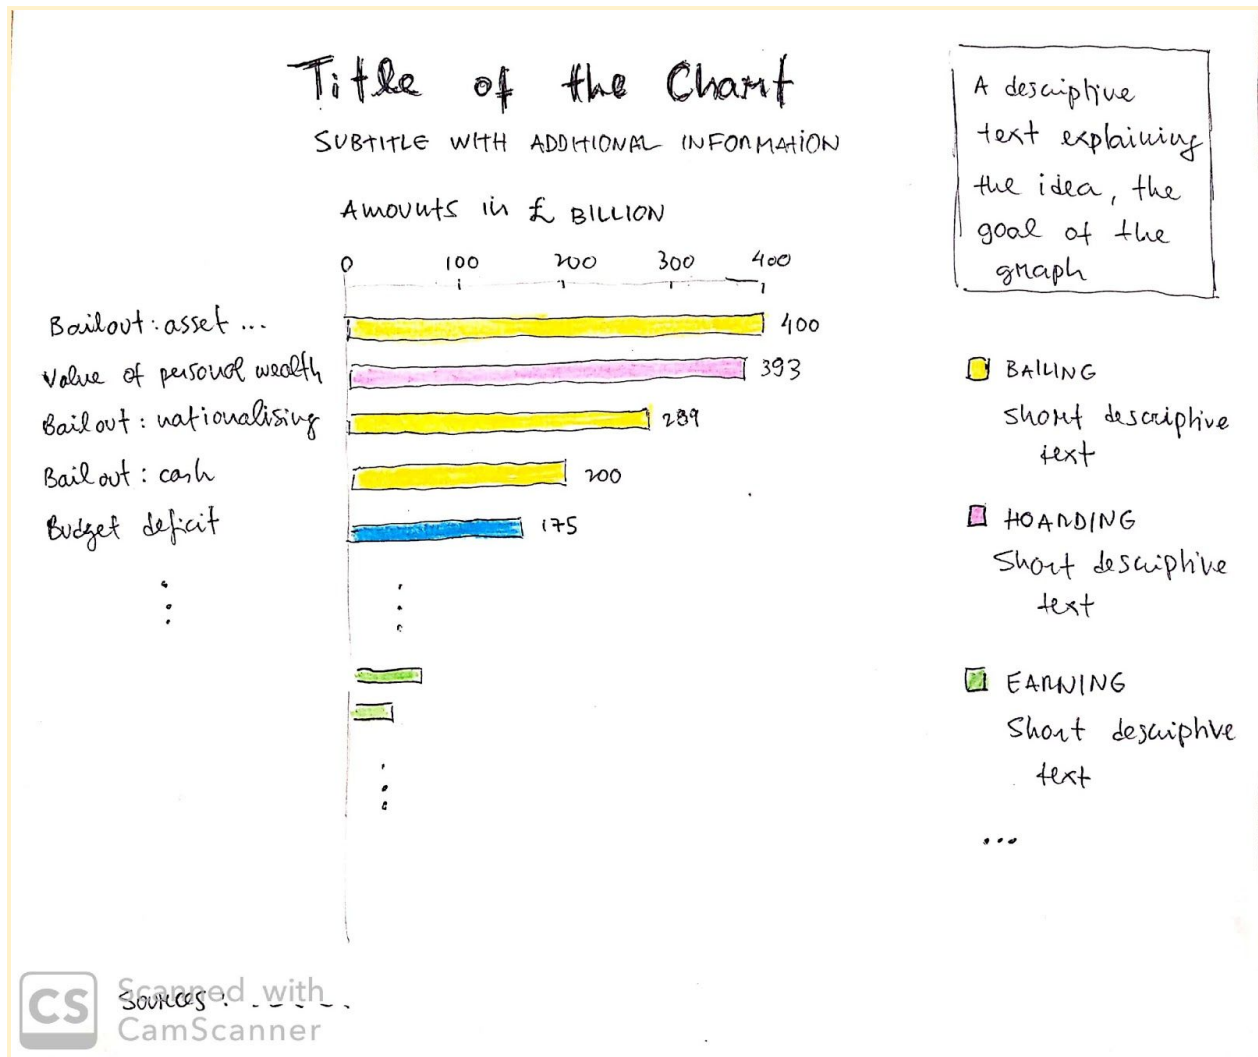 Title of the Chart
SUBTITLE WITH ADDITIONAL INFORMATION
Amounts in £ BILLION
0 100 200 300 400
Bailout: asset ... 400
Value of personal wealth 393
Bailout: nationalising 289
Bailout: cash 200
Budget deficit 175
A descriptive
text explaining
the idea, the
goal of the
graph
BAILING
short descriptive
text
HOARDING
Short descriptive
text
EARNING
Short descriptive
text
...
Sources: - - - - -
CS Scanned with
CamScanner